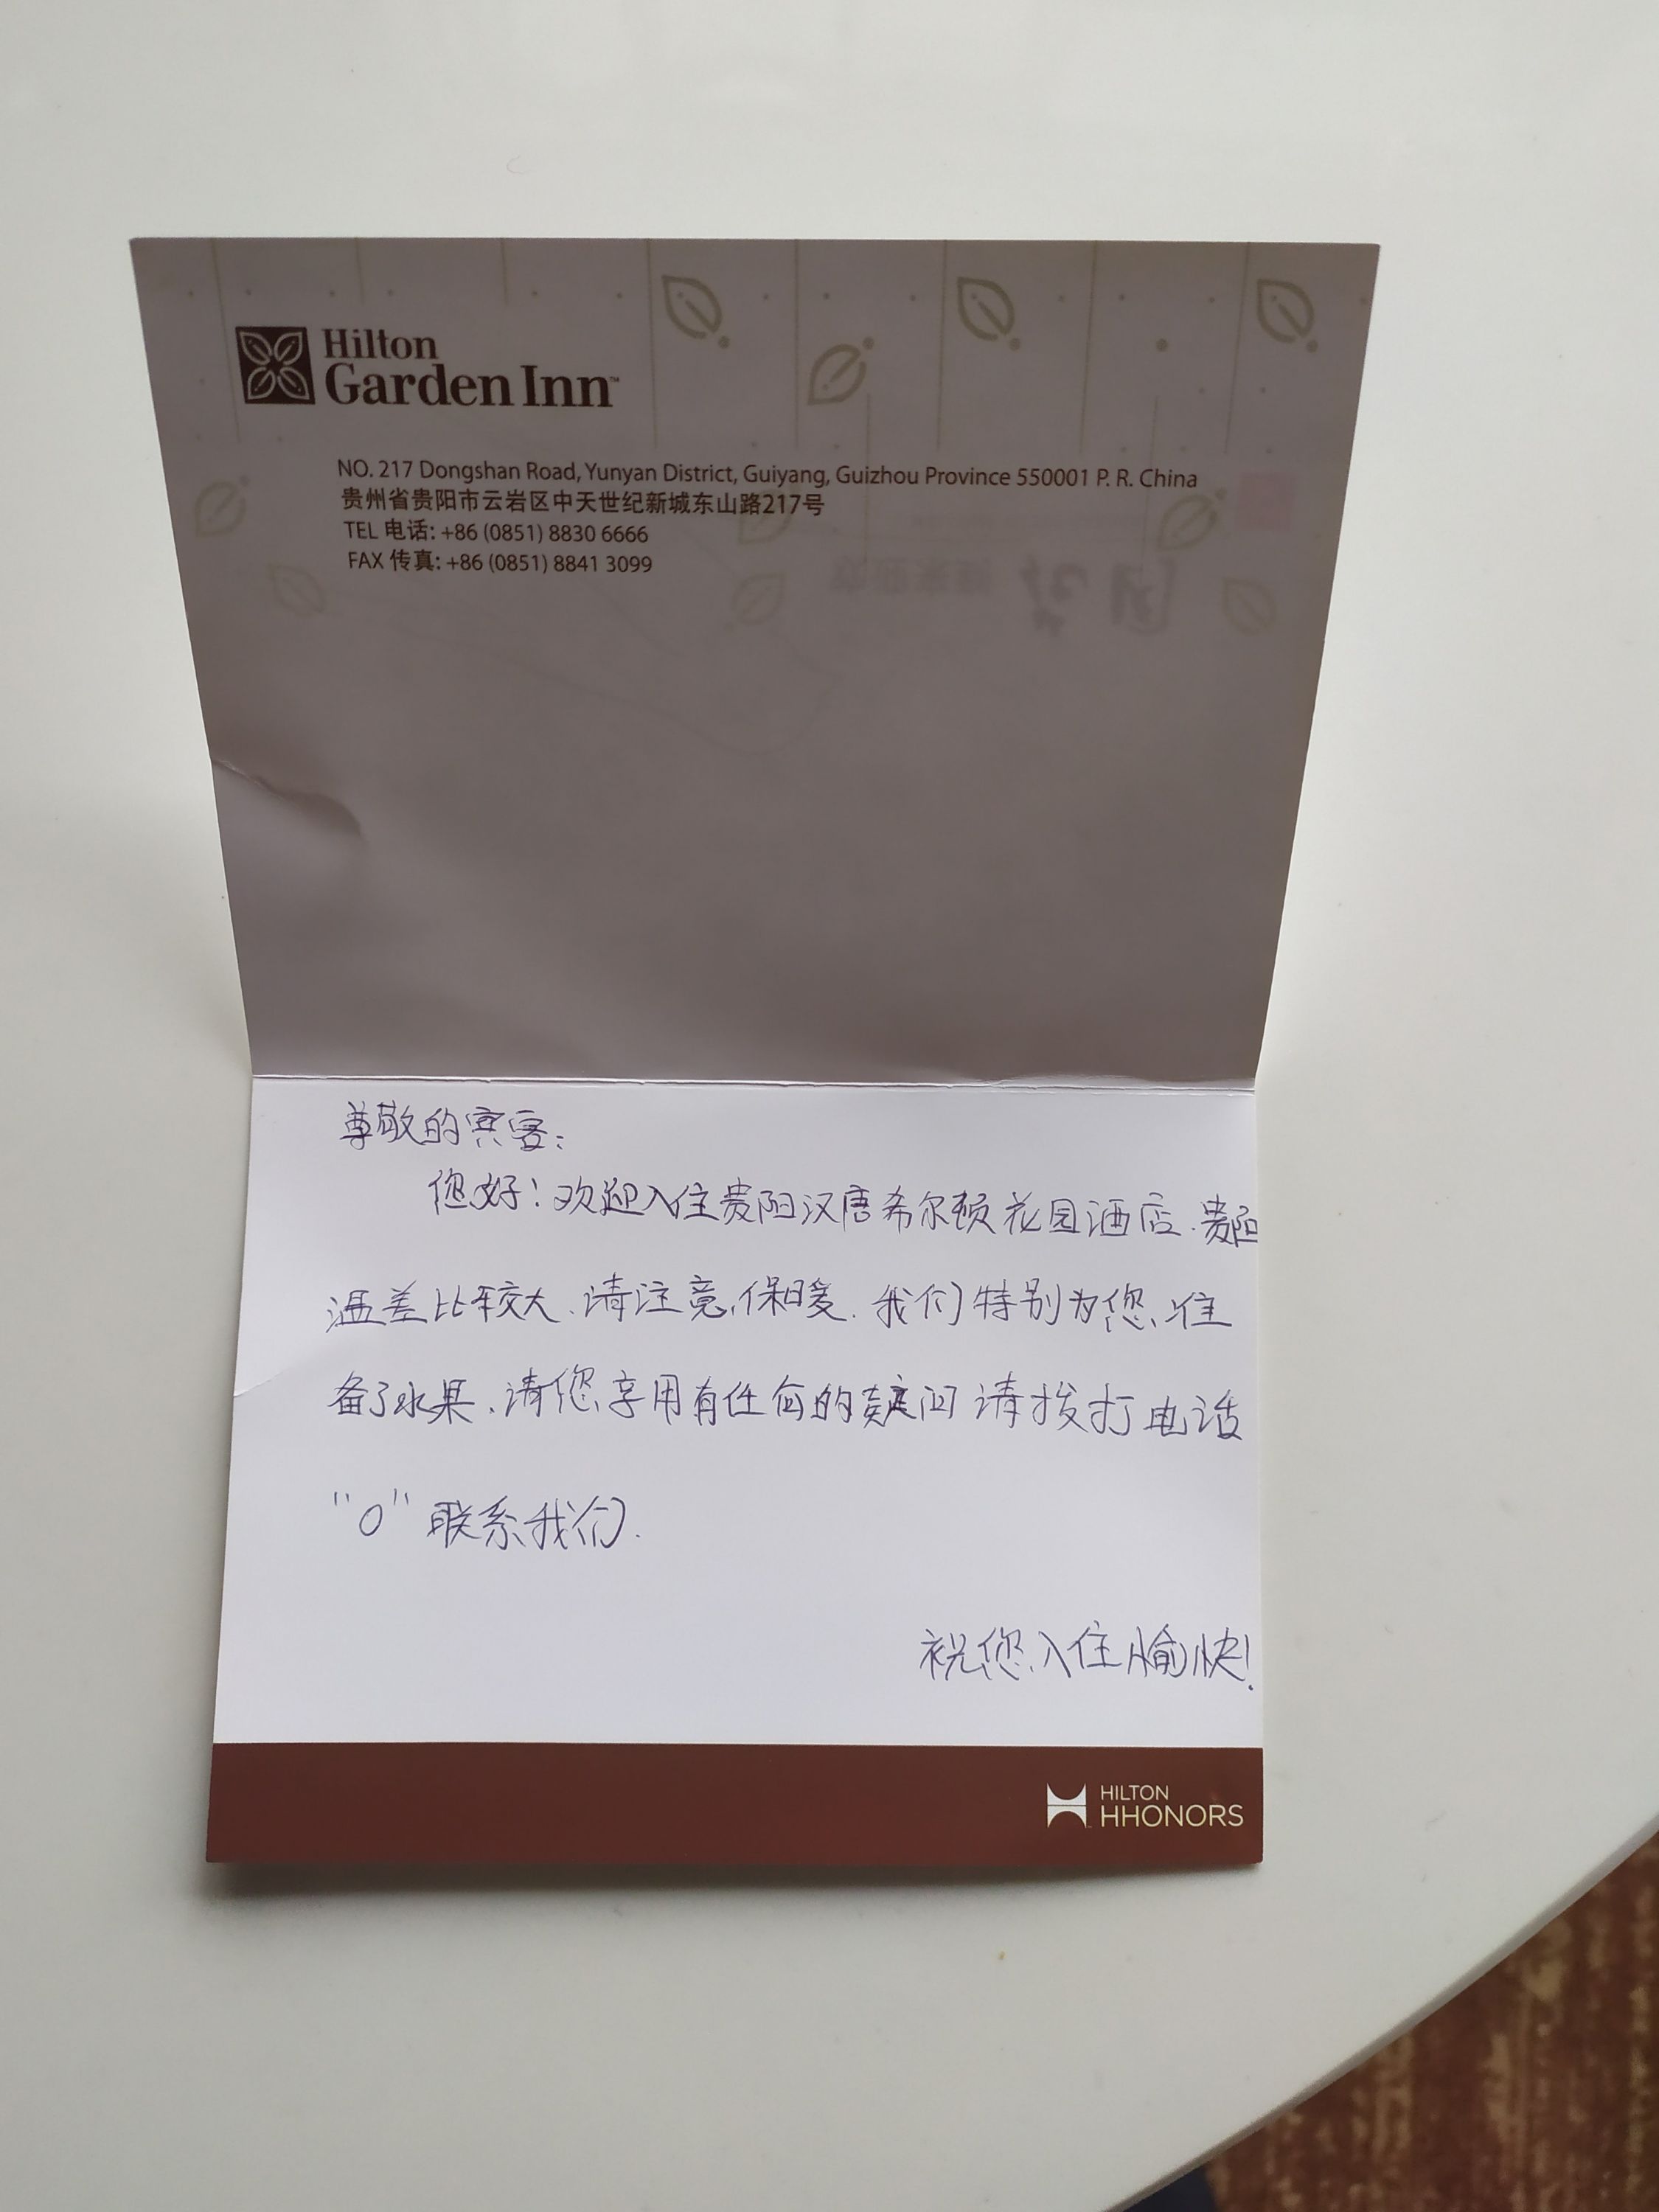 Hilton
Garden Inn™
NO. 217 Dongshan Road, Yunyan District, Guiyang, Guizhou Province 550001 P. R. China
贵州省贵阳市云岩区中天世纪新城东山路217号
TEL 电话: +86 (0851) 8830 6666
FAX 传真: +86 (0851) 8841 3099
尊敬的宾客:
您好!欢迎入住贵阳汉唐希尔顿花园酒店.贵阳
温差比较大.请注意保暖.我们特别为您准
备了水果.请您享用有任何的疑问请拨打电话
"0"联系我们.
祝您入住愉快!
HILTON
HHONORS